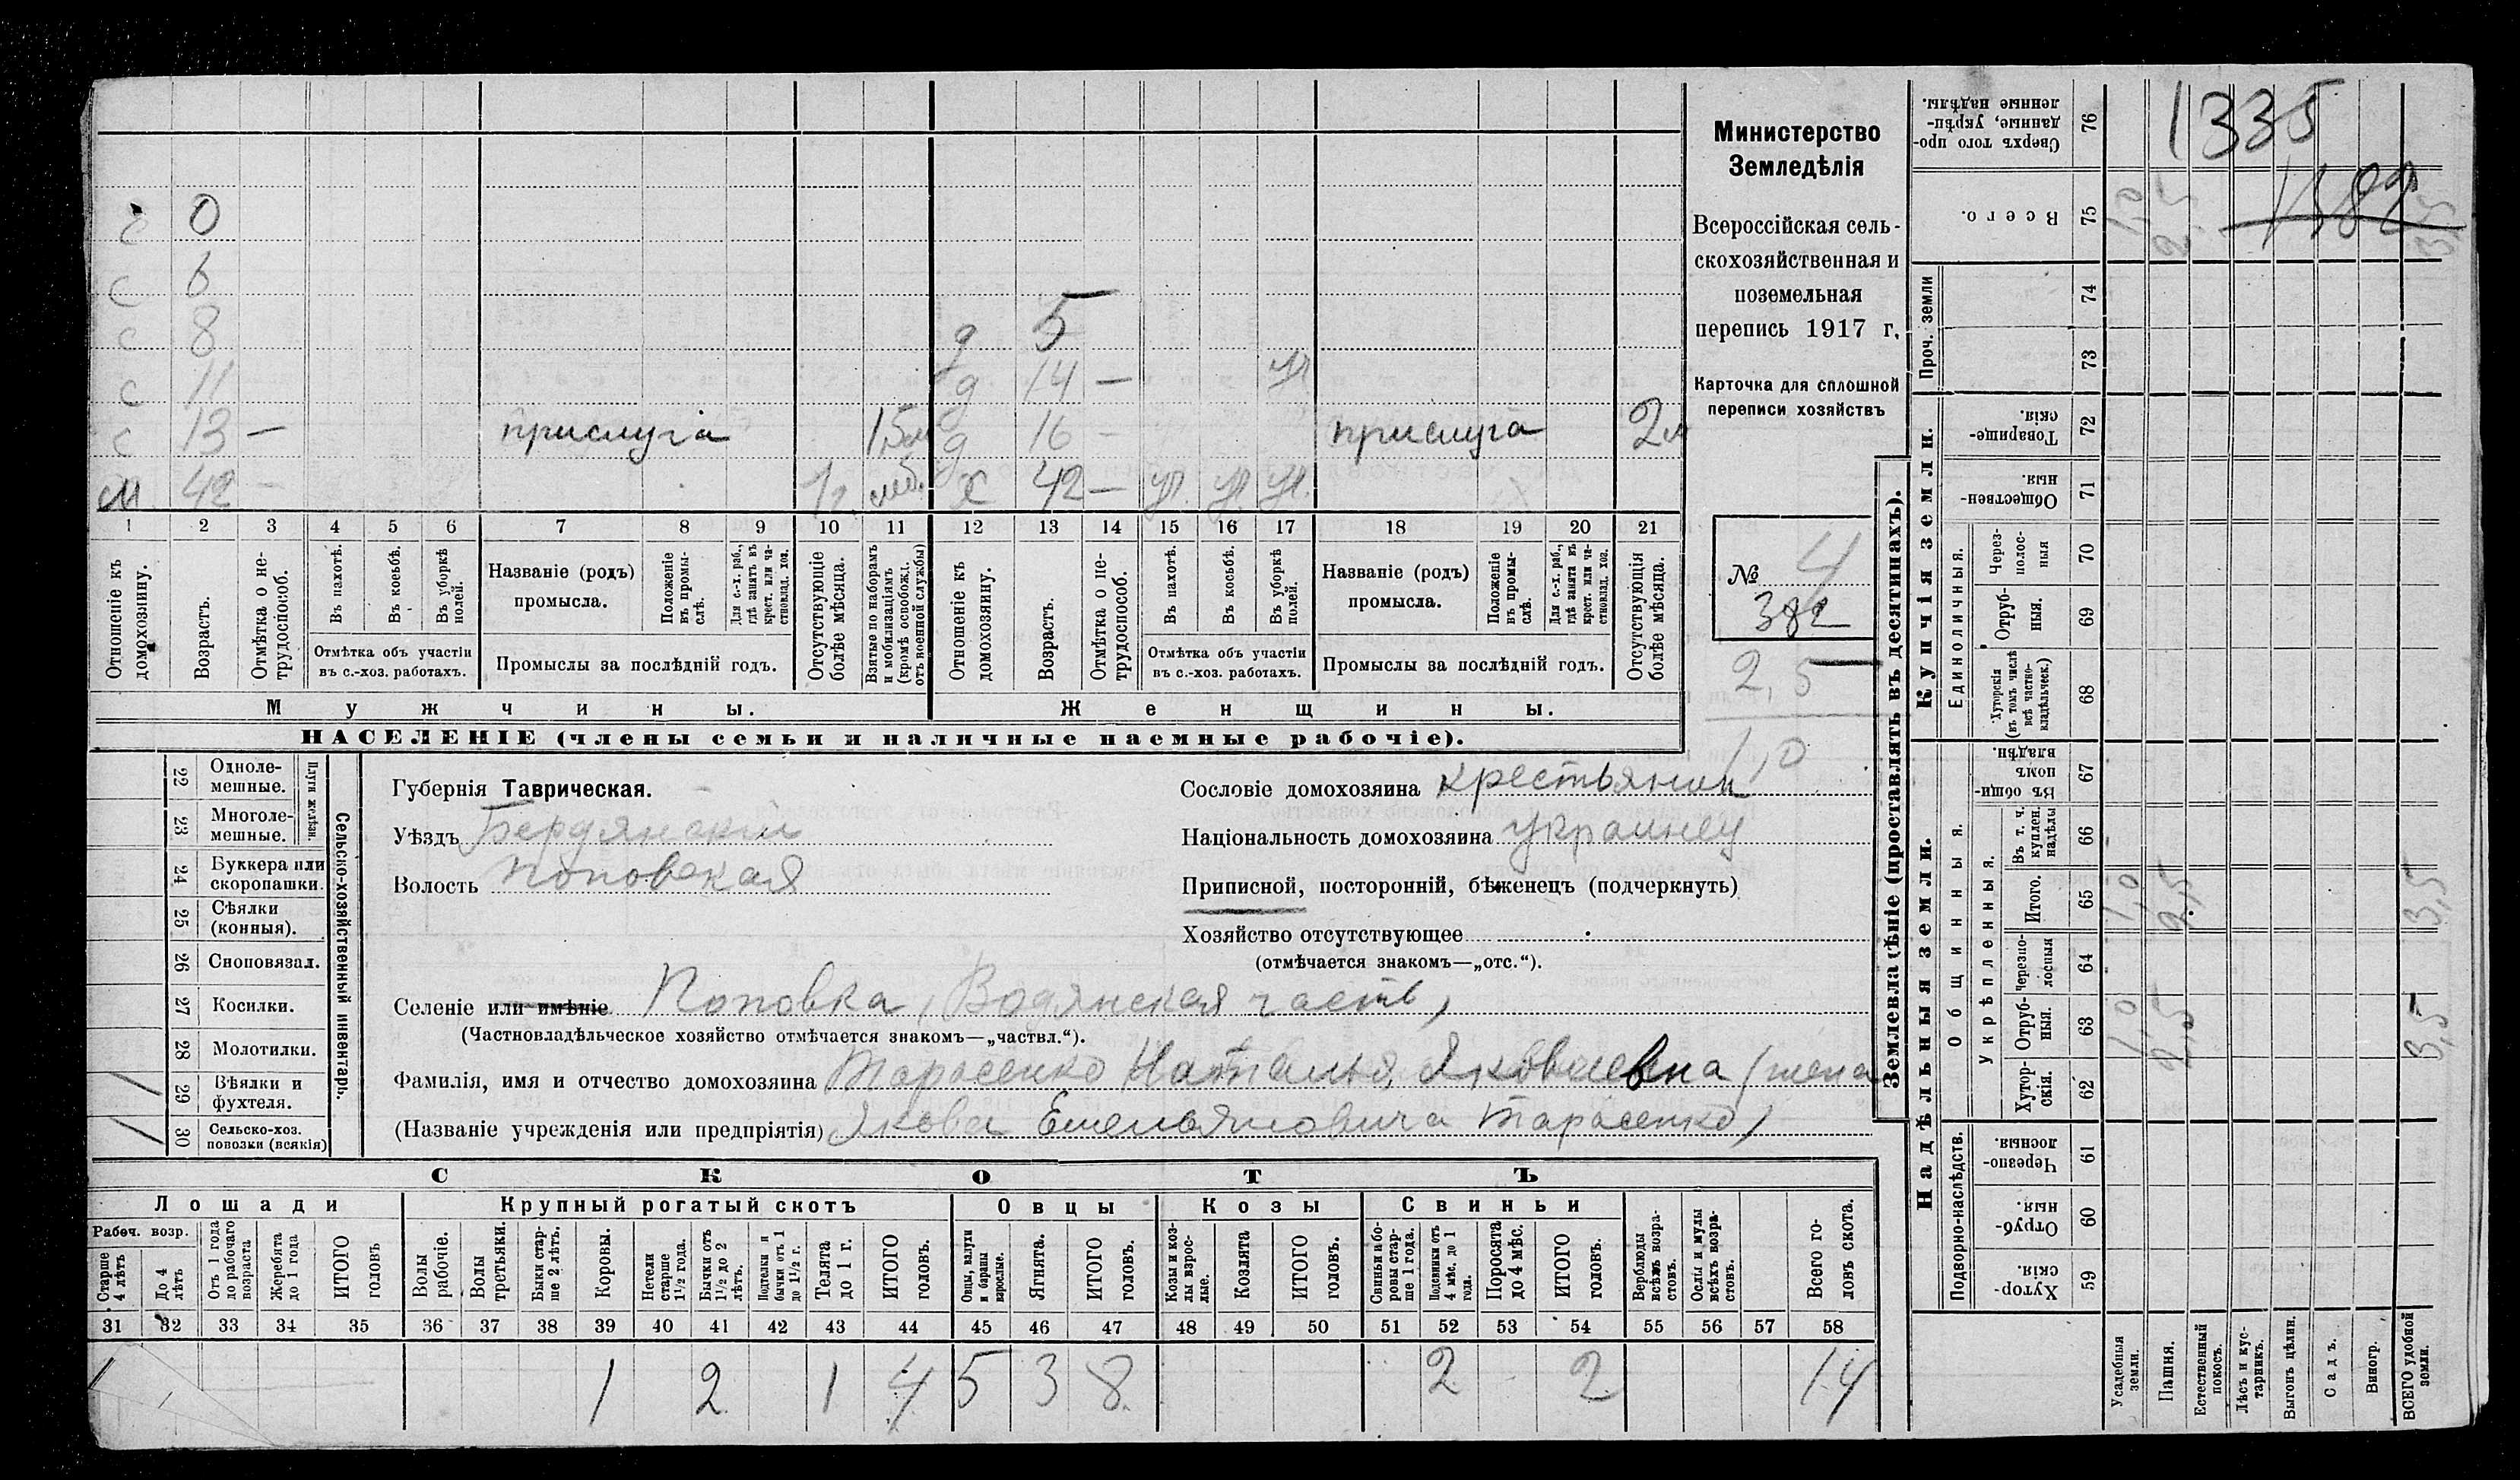 1335
1382
Министерство
Земледѣлія
Всероссійская сель-
скохозяйственная и
поземельная
перепись 1917 г.
Карточка для сплошной
переписи хозяйствъ
№ 4
382
2,5
1,0
с 0
с 6
с 8 д 5
с 11 д 14 —
с 13 — прислуга д 16 — прислуга 2м
м 42 — 1г. х 42 — ул. ул. ул.
1 2 3 4 5 6 7 8 9 10 11 12 13 14 15 16 17 18 19 20 21
Отношеніе къ домохозяину.
Возрастъ.
Отмѣтка о не-трудоспособ.
Въ пахотѣ.
Въ косьбѣ.
Въ уборкѣ полей.
Отмѣтка объ участіи
въ с.-хоз. работахъ.
Названіе (родъ)
промысла.
Положеніе въ промы-слѣ.
Для с.-х. раб., гдѣ занятъ въ крест. или ча-стновлад. хоз.
Промыслы за послѣдній годъ.
Отсутствующіе болѣе мѣсяца.
Взятые по наборамъ и мобилизаціямъ (кромѣ освобожд. отъ военной службы)
Отношеніе къ домохозяину.
Возрастъ.
Отмѣтка о не-трудоспособ.
Въ пахотѣ.
Въ косьбѣ.
Въ уборкѣ полей.
Отмѣтка объ участіи
въ с.-хоз. работахъ.
Названіе (родъ)
промысла.
Положеніе въ промы-слѣ.
Для с.-х. раб., гдѣ занята въ крест. или ча-стновлад. хоз.
Промыслы за послѣдній годъ.
Отсутствующія болѣе мѣсяца.
Мужчины.
Женщины.
НАСЕЛЕНІЕ (члены семьи и наличные наемные рабочіе).
22 Одноле-мешные.
23 Многоле-мешные.
Плуги желѣзн.
24 Буккера или скоропашки.
25 Сѣялки (конныя).
26 Сноповязал.
27 Косилки.
28 Молотилки.
29 Вѣялки и фухтеля. 1
30 Сельско-хоз. повозки (всякія) 1
Сельско-хозяйственный инвентарь.
Губернія Таврическая.
Уѣздъ Бердянскій
Волость Поповская
Сословіе домохозяина крестьянин
Національность домохозяина украинец
Приписной, посторонній, бѣженецъ (подчеркнуть)
Хозяйство отсутствующее
(отмѣчается знакомъ—„отс.“).
Селеніе или имѣніе Поповка, Водянская часть,
(Частновладѣльческое хозяйство отмѣчается знакомъ—„частвл.“).
Фамилія, имя и отчество домохозяина Тарасенко Наталья Яковлевна (жена
(Названіе учрежденія или предпріятія) Якова Емельяновича Тарасенко)
СКОТЪ
Лошади
Крупный рогатый скотъ
Овцы
Козы
Свиньи
Рабоч. возр.
Старше 4 лѣтъ
До 4 лѣтъ
Отъ 1 года до рабочаго возраста
Жеребята до 1 года
ИТОГО головъ
Волы рабочіе.
Волы третьяки.
Быки стар-ше 2 лѣтъ.
Коровы.
Нетели старше 1½ года.
Бычки отъ 1½ до 2 лѣтъ.
Подтелки и бычки отъ 1 до 1½ г.
Телята до 1 г.
ИТОГО головъ.
Овцы, валухи и бараны взрослые.
Ягнята.
ИТОГО головъ.
Козы и коз-лы взрос-лые.
Козлята
ИТОГО головъ.
Свиньи и бо-ровы стар-ше 1 года.
Подсвинки отъ 4 мѣс. до 1 года.
Поросята до 4 мѣс.
ИТОГО головъ.
Верблюды всѣхъ возра-стовъ.
Ослы и мулы всѣхъ возра-стовъ.
Всего го-ловъ скота.
31 32 33 34 35 36 37 38 39 40 41 42 43 44 45 46 47 48 49 50 51 52 53 54 55 56 57 58
1 1 2 1 4 5 3 8 2 2 14
Землевладѣніе (проставлять въ десятинахъ).
Надѣльныя земли.
Купчія земли.
Проч. земли
Подворно-наслѣдств.
Общинныя.
Укрѣпленныя.
Единоличныя.
59 Хутор-скія.
60 Отруб-ныя.
61 Черезпо-лосныя.
62 Хутор-скія.
63 Отруб-ныя. 1,0 2,5 3,5
64 Черезпо-лосныя
65 Итого. 1,0 2,5 3,5
66 Въ т. ч. куплен. надѣлы
67 Въ общи-номъ владѣн.
68 Хуторскія (въ томъ числѣ всѣ частно-владѣльческ.)
69 Отруб-ныя.
70 Через-полос-ныя
71 Обществен-ныя
72 Товарище-скія.
73
74
75 Всего. 1,0 2,5 3,5
76 Сверхъ того про-данные, укрѣп-ленные надѣлы.
Усадебныя земли.
Пашня.
Естественный покосъ.
Лѣсъ и кус-тарникъ.
Выгонъ цѣлин.
Садъ.
Виногр.
ВСЕГО удобной земли.